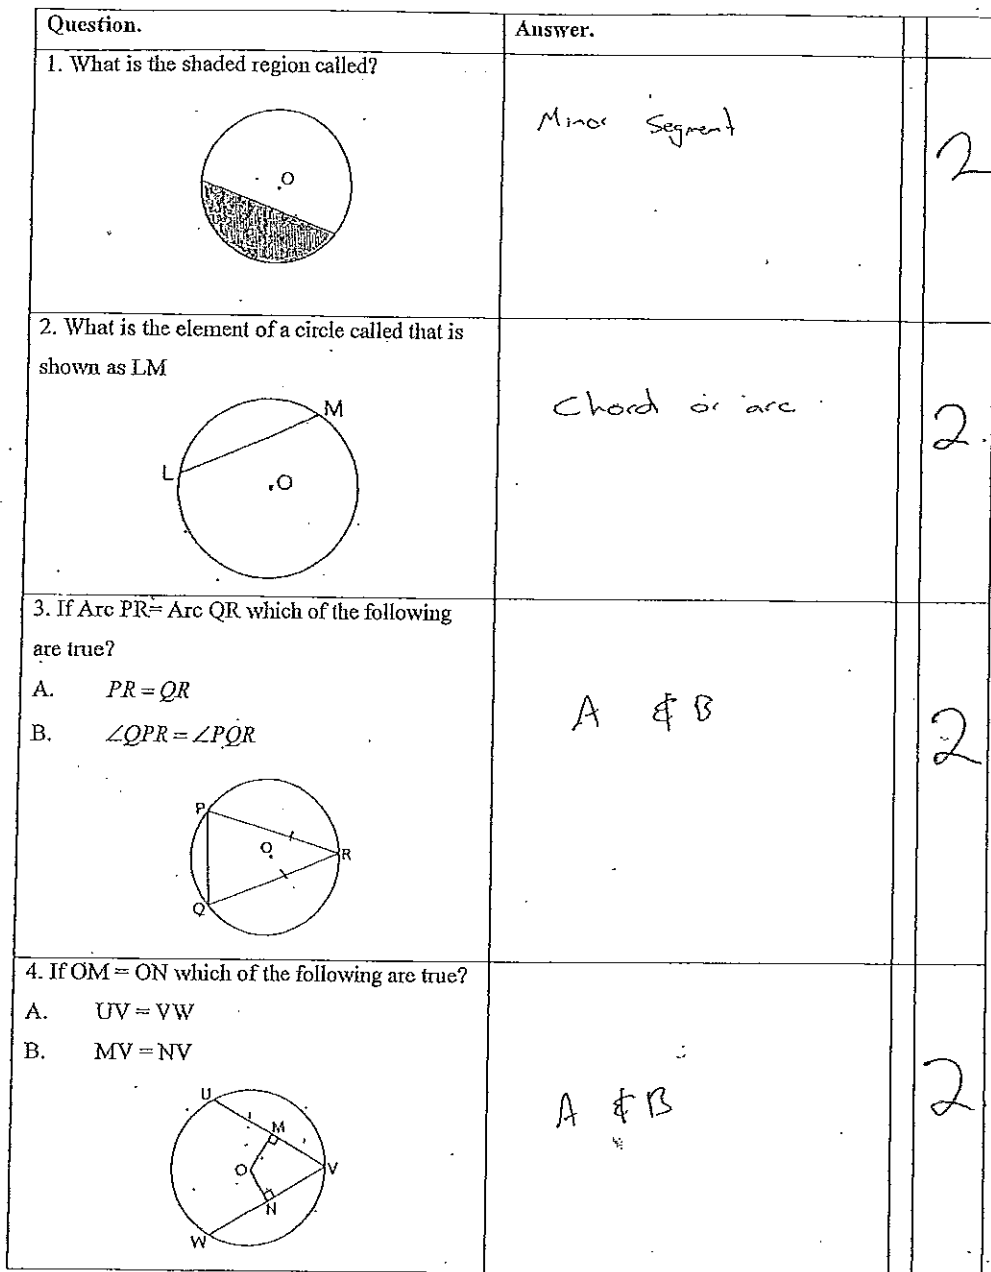 Question.
Answer.
1. What is the shaded region called?
O
Minor Segment
2
2. What is the element of a circle called that is
shown as LM
M
L
O
Chord or arc
2.
3. If Arc PR= Arc QR which of the following
are true?
A. PR = QR
B. ∠QPR = ∠PQR
P
O
R
Q
A & B
2
4. If OM = ON which of the following are true?
A. UV = VW
B. MV = NV
U
M
O
V
N
W
A & B
2